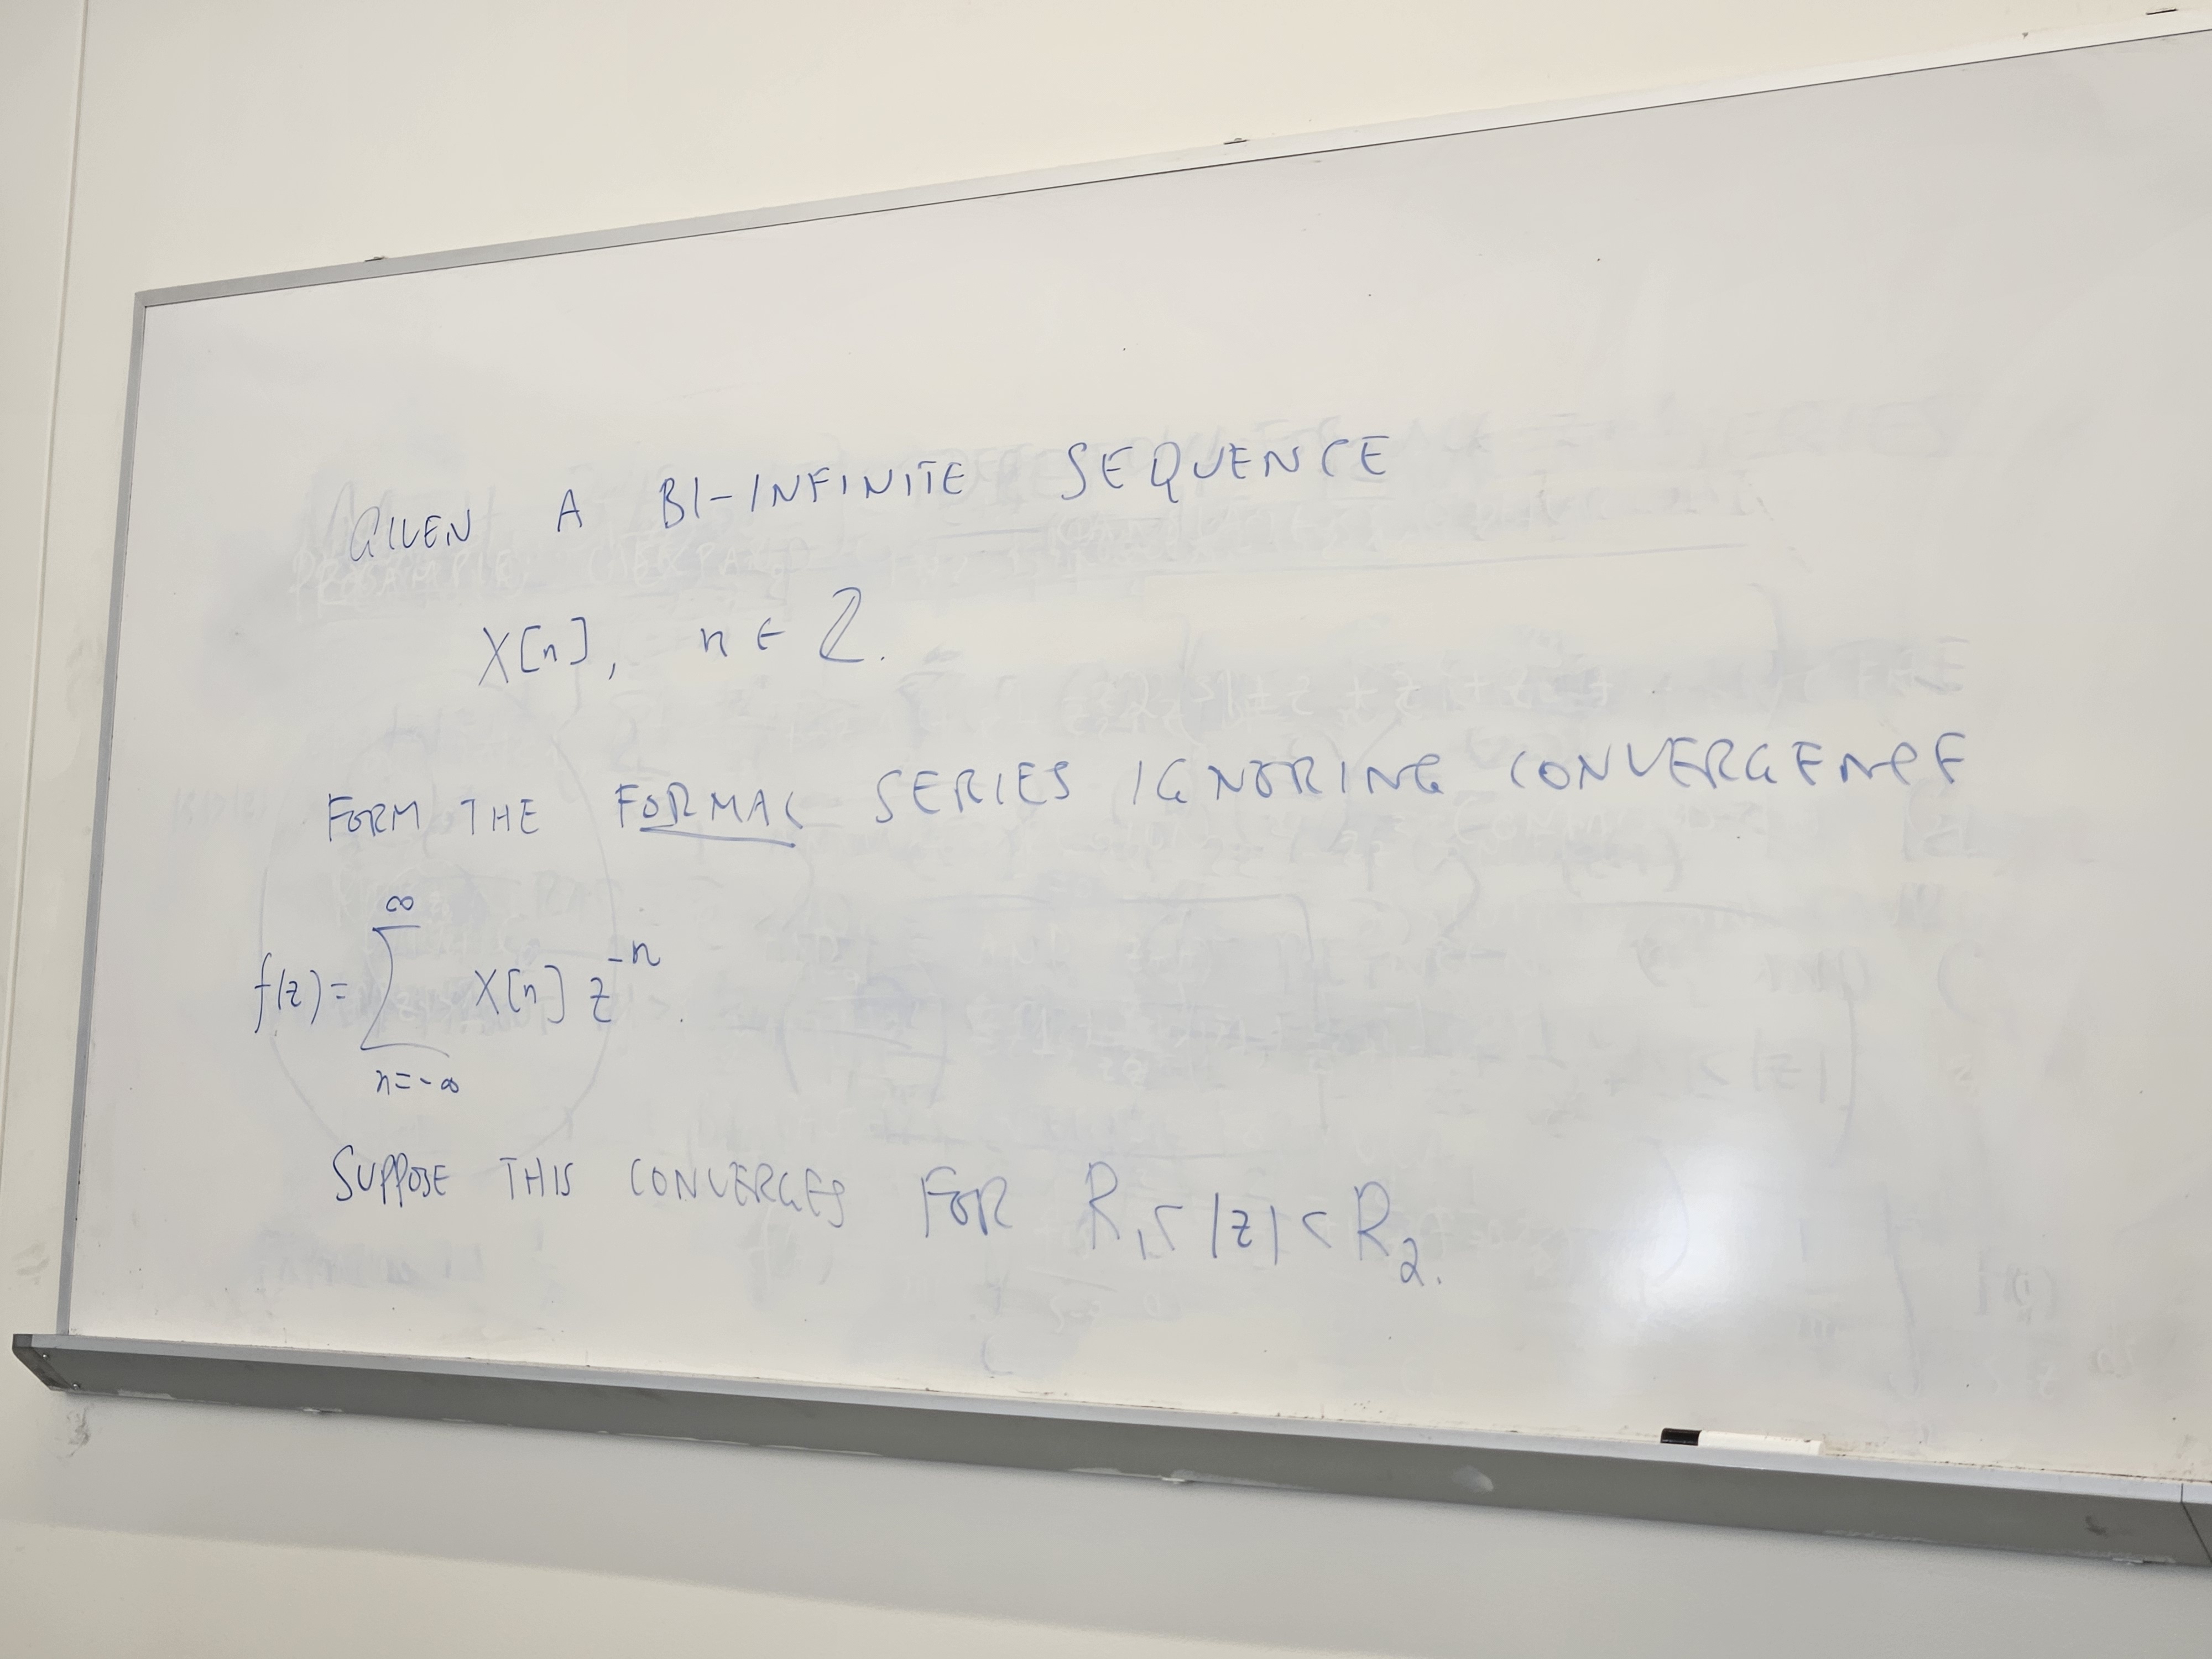 GIVEN A BI-INFINITE SEQUENCE
X[n], n ∈ ℤ.
FORM THE FORMAL SERIES IGNORING CONVERGENCE
f(z) = ∑_{n=-∞}^{∞} X[n] z^{-n}.
SUPPOSE THIS CONVERGES FOR R_1 < |z| < R_2.